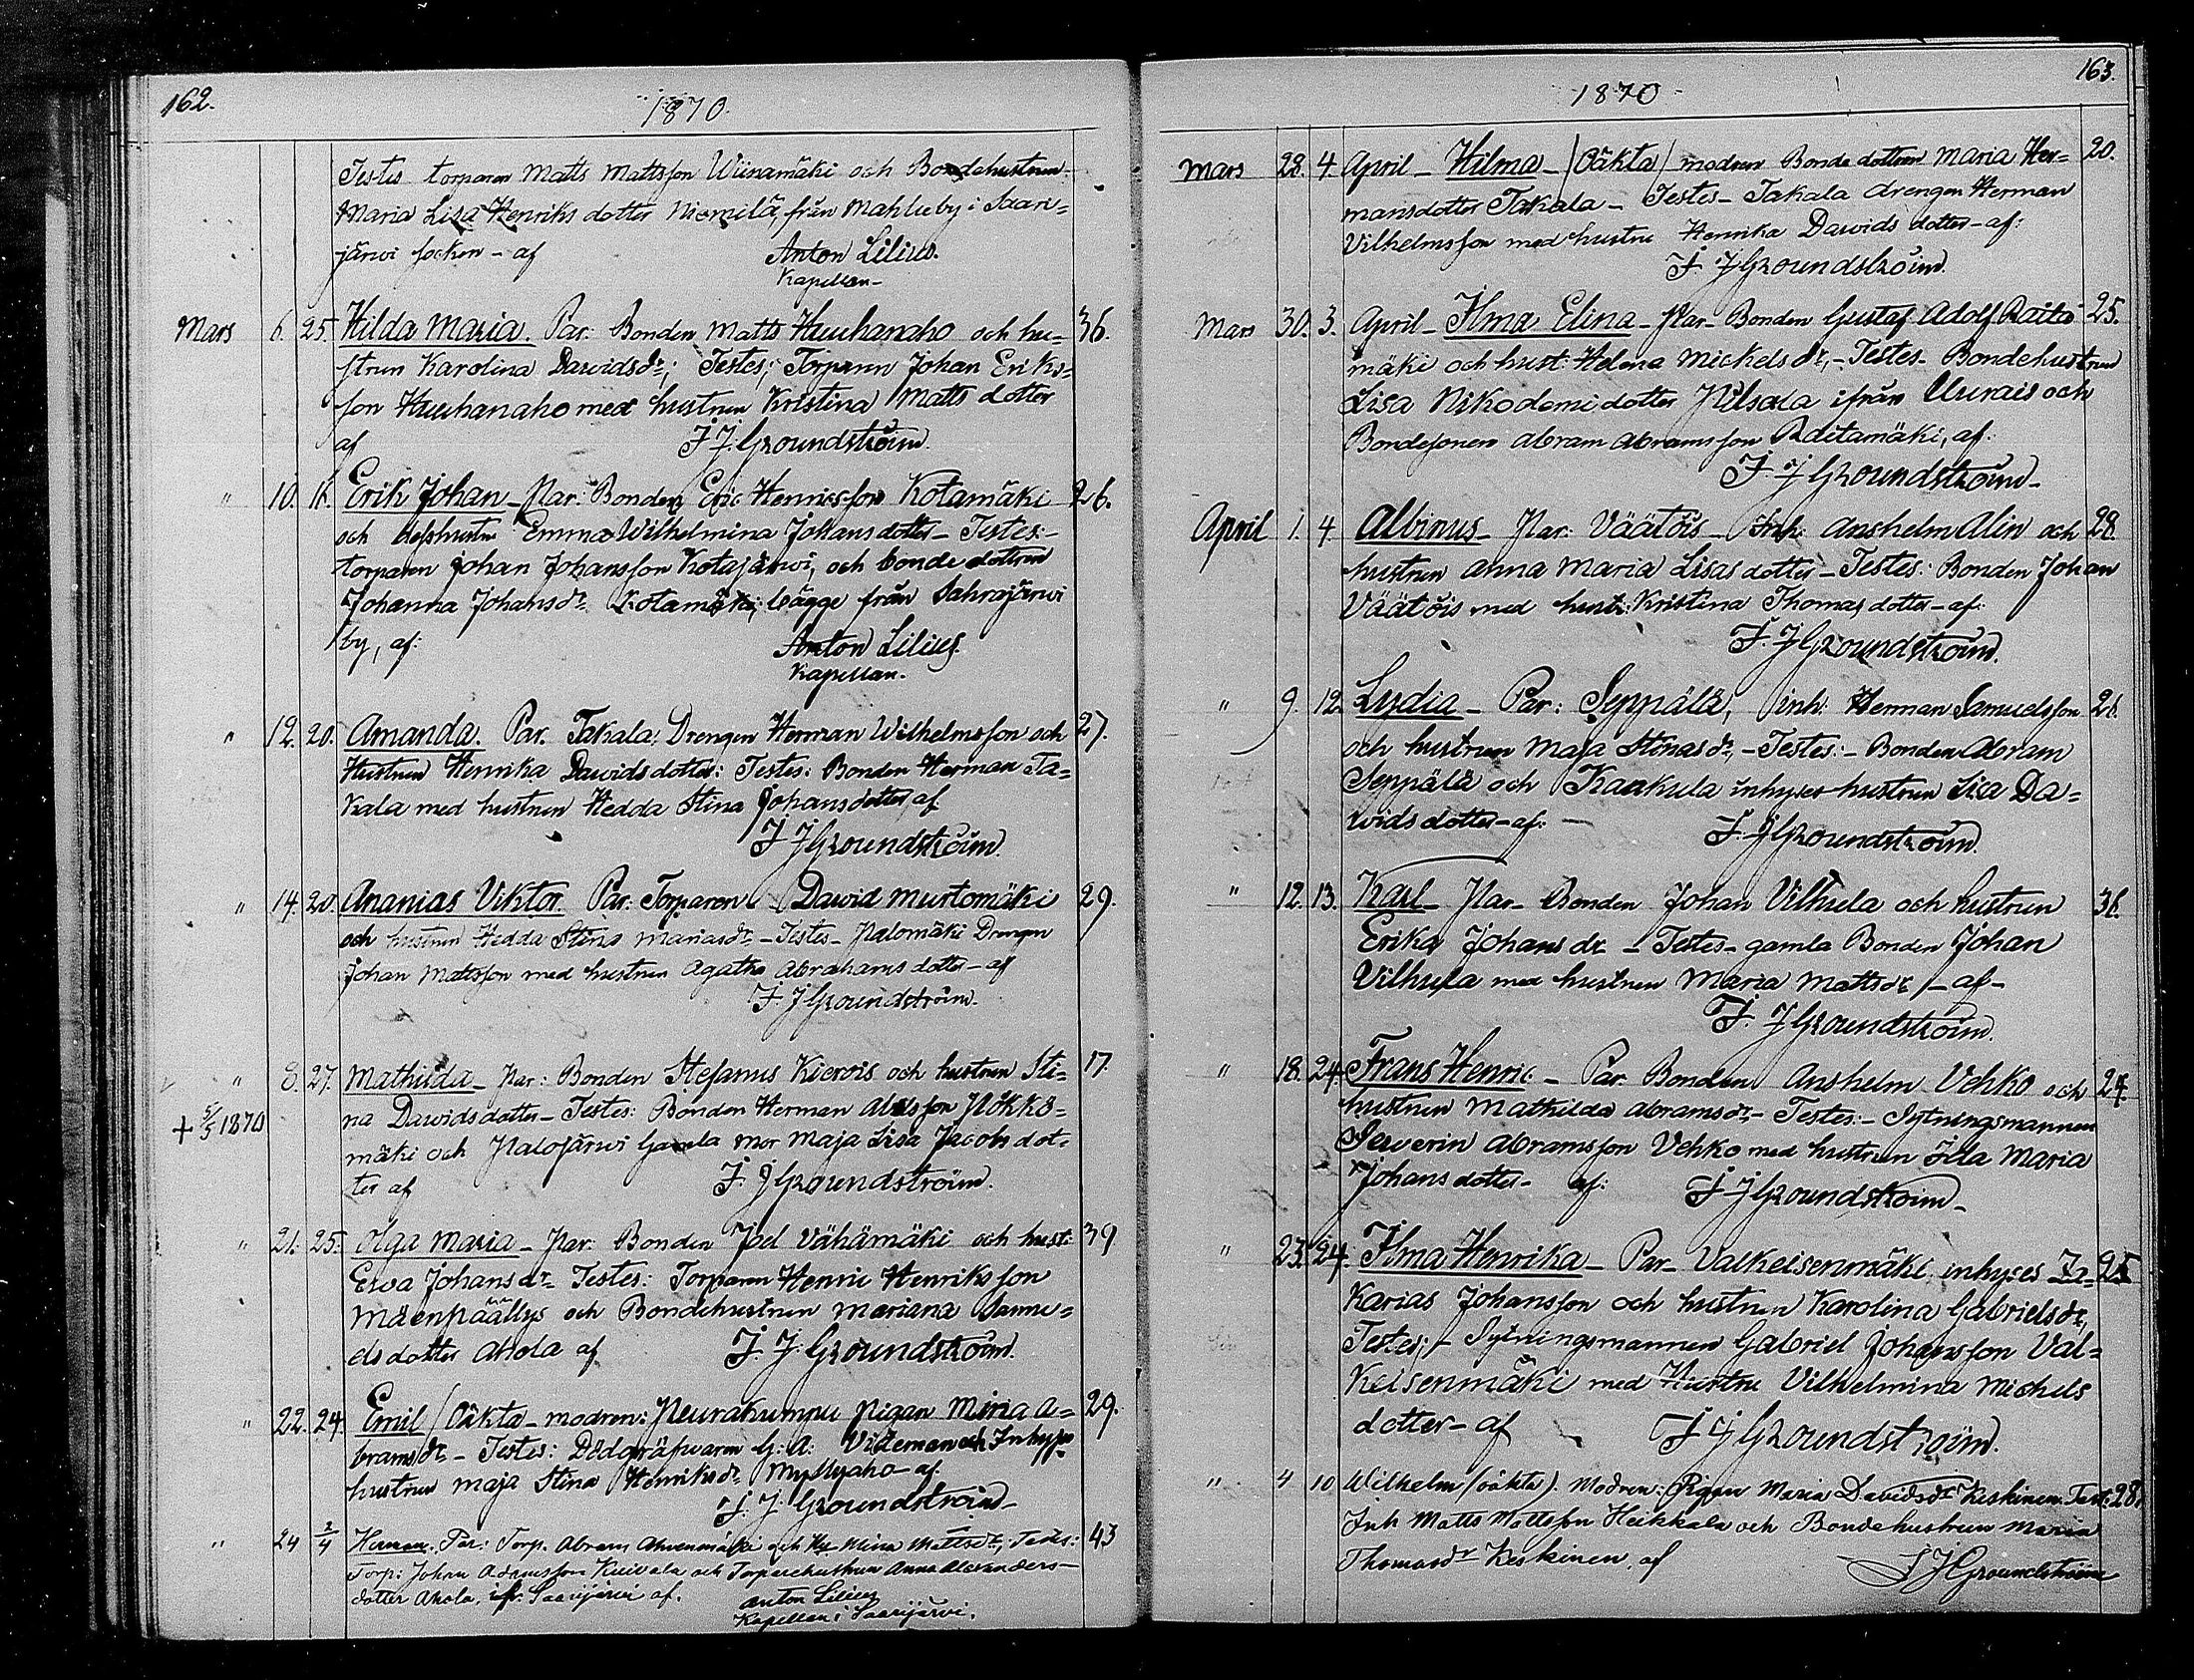 162.
1870.
Testes torparen Matts Mattsson Wiinamäki och Bondehustrun
Maria Lisa Henriksdotter Niemilä, från Mahlu by i Saari-
järwi socken - af Anton Lilius.
Kapellan-
Mars 6. 25. Hilda Maria. Par: Bonden Matts Huuhanaho och hu- 36.
strun Karolina Dawidsdr; Testes; Torparen Johan Eriks-
son Huuhanaho med hustrun Kristina Matts dotter
af F. J. Groundström.
" 10. 16. Erik Johan - Par: Bonden Eric Henricsson Kotamäki 26.
och dess hustru Emma Wilhelmina Johansdotter - Testes:-
torparen Johan Johansson Kotajärwi, och bonde dottren
Johanna Johansdr Kotamäki, bägge från Sahrajärwi
by, af: Anton Lilius.
Kapellan.
" 12. 20. Amanda. Par. Takala: Drengen Herman Wilhelmsson och 27.
Hustrun Henrika Dawidsdotter: Testes: Bonden Herman Ta-
kala med hustrun Hedda Stina Johansdotter af
F. J Groundström.
" 14. 20. Ananias Viktor. Par. Torparen Dawid Murtomäki 29.
och hustrun Hedda Stina Mariasdr - Testes - Palomäki Drengen
Johan Mattsson med hustrun Agatha Abrahams dotter - af
F. J Groundström.
" 8. 27. Mathilda - Par: Bonden Stefanus Kierois och hustrun Sti- 17.
+ 5/5 1870
na Dawidsdotter - Testes: Bonden Herman Alexsson Pökkö-
mäki och Palojärwi Gamla mor Maja Lisa Jacobs dot-
ter af F. J Groundström.
" 21. 25. Olga Maria - Par: Bonden Joel Vähämäki och hust: 39
Ewa Johansdr - Testes: Torparen Henric Henriksson
Mäenpäällys och Bondehustrun Mariana Samu-
elsdotter Ahola af F. J. Groundström.
" 22. 24. Emil / Oäkta - modren: Peurakumpu Pigan Mina A- 29.
bramsdr - Testes: Dödgräfwaren G: A: Videman och Inhyses
hustrun Maja Stina Henriksdr Myllyaho - af
F. J. Groundström
" 24 2/4 Herman. Par: Torp. Abram Ahvenmäki och Hu Mina Mattsdr, Testes: 43
Torp: Johan Adamsson Kuivala och Torparehustrun Anna Alexanders-
dotter Ahola, ifr. Saarijärvi af. Anton Lilius
Kapellan i Saarijärvi.
163.
1870
Mars 28. 4. April - Hilma - / Oäkta / modren Bonde dottren Maria Her- 20.
mansdotter Takala - Testes - Takala drengen Herman
Vilhelmsson med hustru Henrika Dawids dotter - af:
F. J Groundström.
Mars 30. 3. April - Ilma Elina - Par - Bonden Gustaf Adolf Raita- 25.
mäki och hust: Helena Mickelsdr, - Testes - Bondehustrun
Lisa Nikodemi dotter Pilsala ifrån Uurais och
Bondesonen Abram Abramsson Raitamäki, af.
F. J Groundström -
April 1. 4 Albinus - Par: Väätöis - Inh: Anshelm Alin och 28.
hustrun Anna Maria Lisas dotter - Testes: Bonden Johan
Väätöis med hust: Kristina Thomas dotter - af:
F. J Groundström.
" 9. 12. Lydia - Par: Seppälä, inh: Herman Samuelsson 26.
och hustrun Maja Stinasdr, - Testes: - Bonden Abram
Seppälä och Kaakula inhyses hustrun Lisa Da-
widsdotter - af: - F. J Groundström.
" 12. 13. Karl - Par - Bonden Johan Vilhula och hustrun 36.
Erika Johansdr - Testes - gamla Bonden Johan
Vilhula med hustrun Maria Mattsdr - af -
F. J Groundström.
" 18. 24. Frans Henric - Par Bonden Anshelm Vehko och 24.
hustrun Mathilda Abramsdr - Testes: - Sytningsmannen
Sewerin Abramsson Vehko med hustrun Ulla Maria
Johansdotter - af: F. J Groundström -
" 23. 24. Ilma Henrika - Par - Valkeisenmäki inhyses Za- 25
karias Johansson och hustrun Karolina Gabrielsdr,
Testes; - Sytningsmannen Gabriel Johansson Val-
keisenmäki med Hustru Vilhelmina Michels
dotter - af F J Groundström.
" 4 10 Wilhelm (oäkta). Modren: Pigan Maria Davidsdr Keskinen. Test: 28.
Inh Matts Mattsson Heikkala och Bondehustrun Maria
Thomasdr Keskinen, af F J Groundström